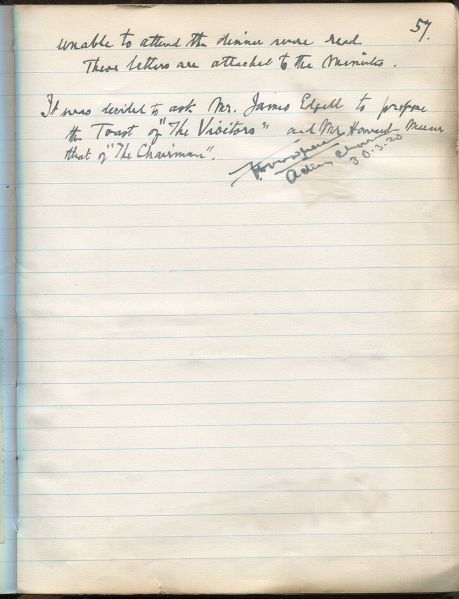 57.
unable to attend the dinner were read
These letters are attached to the Minutes.
It was decided to ask Mr. James Edgell to propose
the Toast of "The Visitors" and Mr Howard
that of "The Chairman".
Acting Chairman
30.3.20